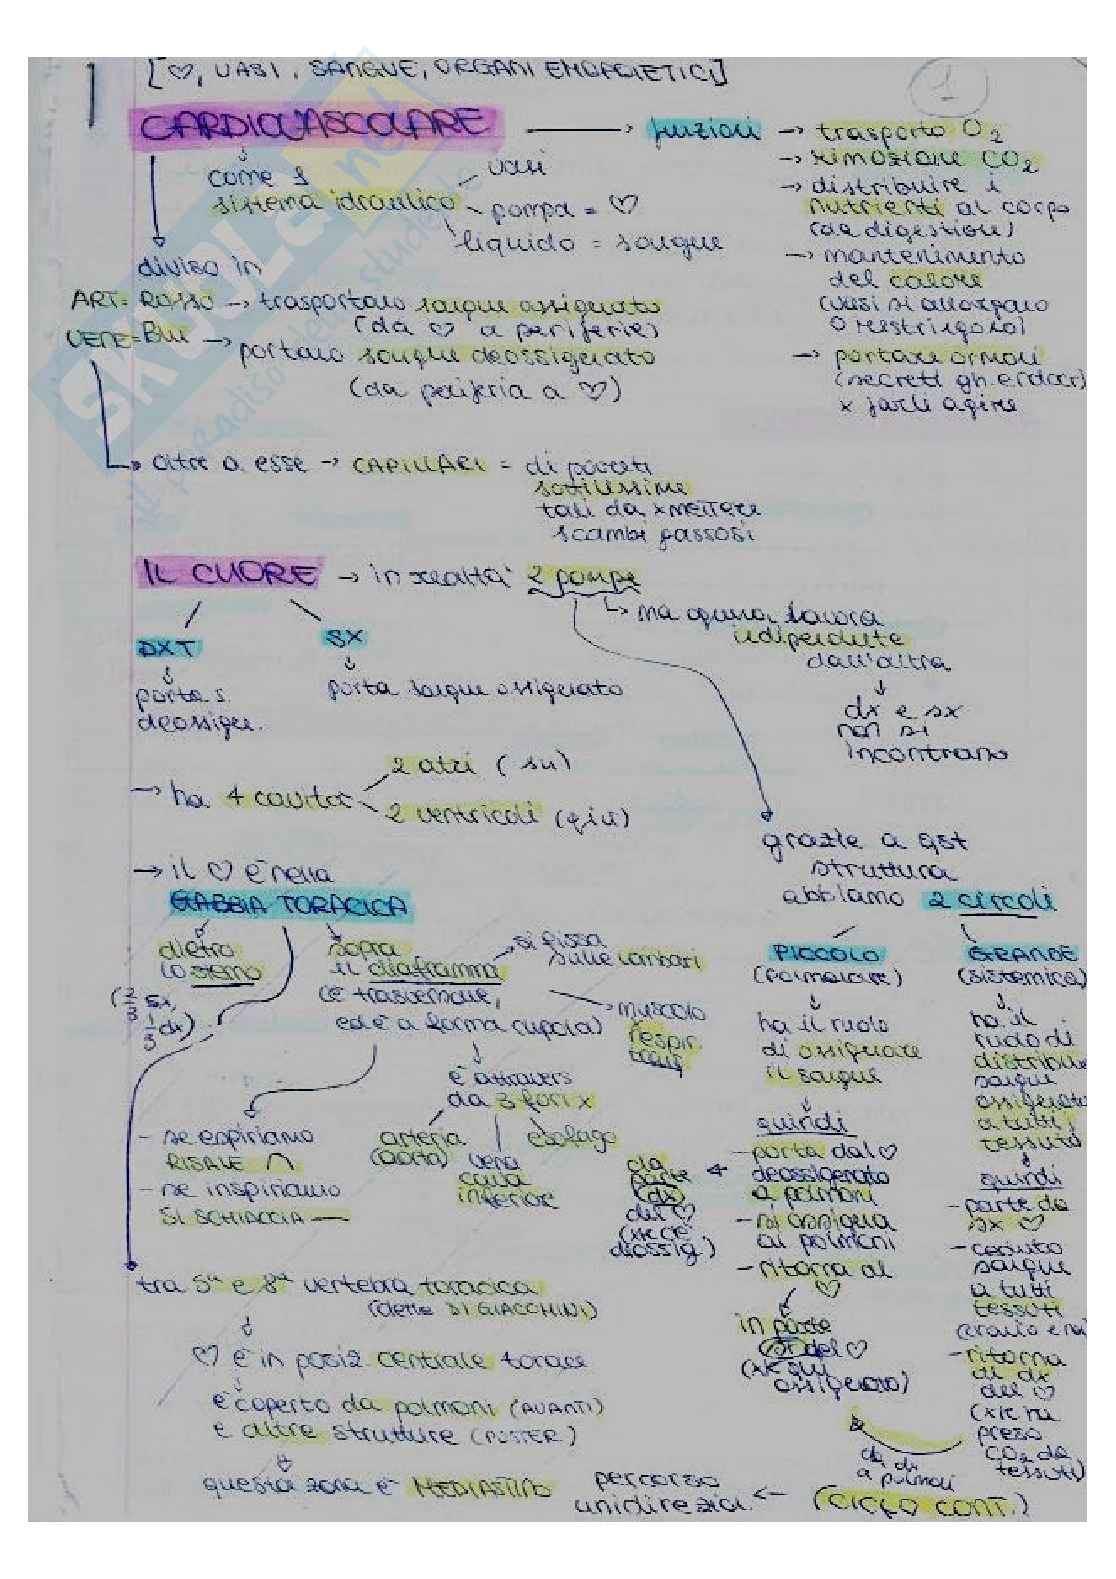 [♡, VASI, SANGUE, ORGANI EMOPOIETICI]
1
CARDIOVASCOLARE → funzioni → trasporto O2
→ rimozione CO2
→ distribuire i
nutrienti al corpo
(da digestione)
→ mantenimento
del calore
(vasi si allargano
o restringono)
→ portare ormoni
(secreti gh. endocr)
x farli agire
come 1
sistema idraulico
vasi
pompa = ♡
liquido = sangue
diviso in
ART = Rosso → trasportano sangue ossigenato
(da ♡ a periferie)
VENE = Blu → portano sangue deossigenato
(da periferia a ♡)
oltre a esse → CAPILLARI = di pareti
sottilissime
tali da xmettere
scambi gassosi
IL CUORE → in realtà 2 pompe
ma ognuna lavora
indipendente
dall'altra
dx e sx
non si
incontrano
DXT
porta s.
deossige.
SX
porta sangue ossigenato
→ ha 4 cavità
2 atri (su)
2 ventricoli (giù)
→ il ♡ è nella
GABBIA TORACICA
dietro
lo sterno
(2/3 sx,
1/3 dx)
sopra
il diaframma
(è trasversale,
ed è a forma cupola)
si fissa
sulle lombari
muscolo
respir.
è attravers
da 3 fori x
arteria
(aorta)
vena
cava
inferiore
esofago
- se espiriamo
RISALE ∩
- se inspiriamo
SI SCHIACCIA —
tra 5ª e 8ª vertebra toracica
(dette DI GIACOMINI)
♡ è in posiz. centrale torace
è coperto da polmoni (AVANTI)
e altre strutture (POSTER.)
questa zona è MEDIASTINO
grazie a qst
struttura
abbiamo 2 circoli
PICCOLO
(polmonare)
ha il ruolo
di ossigenare
il sangue
quindi
- porta dal ♡
deossigenato
a polmoni
- si ossigena
ai polmoni
- ritorna al
♡
da
parte
dx
del ♡
(xke è
deossig.)
in parte
sx del ♡
(xk qui
ossigenato)
GRANDE
(sistemica)
ha il
ruolo di
distribuire
sangue
ossigenato
a tutti i
tessuti
quindi
- parte da
sx ♡
- ceduto
sangue
a tutti
tessuti
- ritorna
di dx
del ♡
(xke ha
preso
CO2 da
tessuti)
da dx
a polmoni
(CICLO CONT.)
← percorso
unidirezion.
SKUOLA.net
il paradiso dello studente